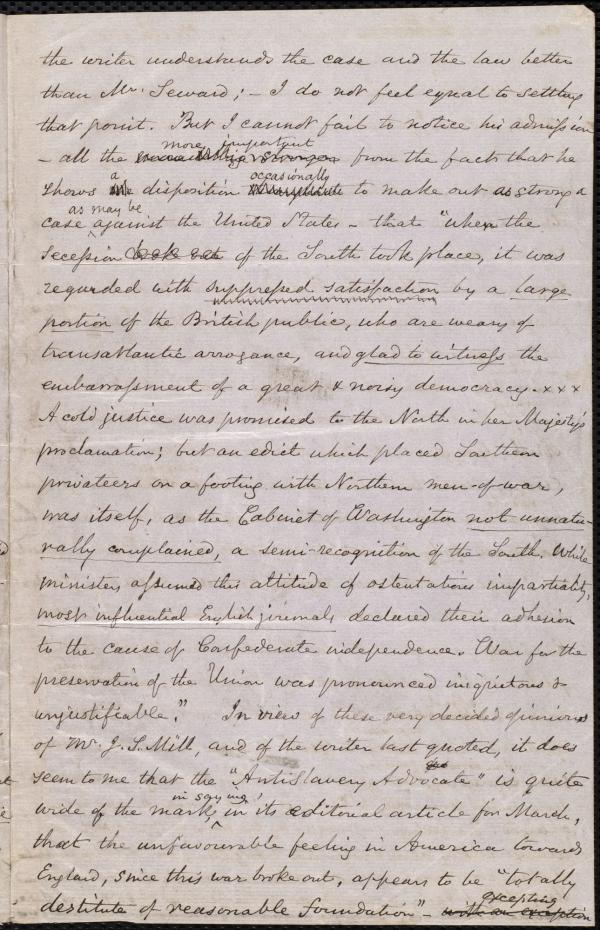 the writer understands the case and the law better
than Mr. Seward; – I do not feel equal to settling
that point. But I cannot fail to notice his admission
more important
– all the from the fact that he
a occasionally
shows the disposition to make out as strong a
as may be
case against the United States – that "when the
Secession of the South took place, it was
regarded with suppressed satisfaction by a large
portion of the British public, who are weary of
transatlantic arrogance, and glad to witness the
embarrassment of a great & noisy democracy. × × ×
A cold justice was promised to the North in her Majesty's
proclamation; but an edict which placed Southern
privateers on a footing with Northern men-of-war,
was itself, as the Cabinet of Washington not unnatu-
rally complained, a semi-recognition of the South. While
ministers assumed this attitude of ostentatious impartiality,
most influential English journals declared their adhesion
to the cause of Confederate independence. War for the
preservation of the Union was pronounced iniquitous &
unjustifiable." In view of these very decided opinions
of Mr. J. S. Mill, and of the writer last quoted, it does
seem to me that the "Antislavery Advocate" is quite
in saying,
wide of the mark, in its editorial article for March,
that the unfavourable feeling in America towards
England, since this war broke out, appears to be "totally
excepting
destitute of reasonable foundation" – with an exception